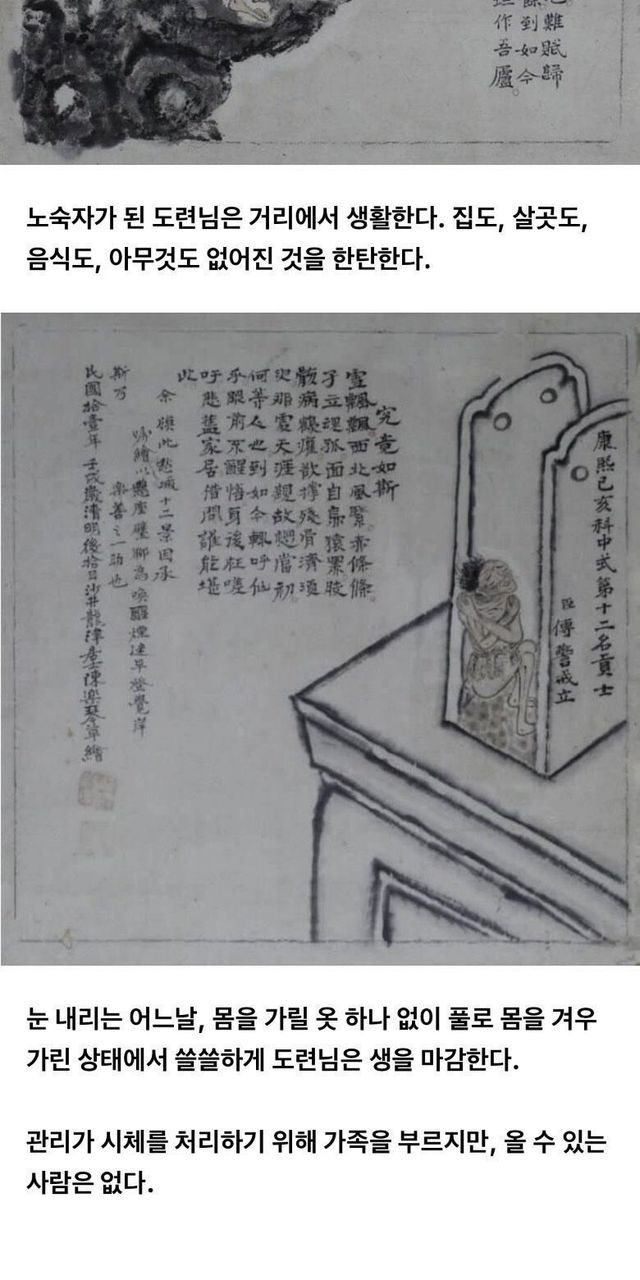 難賦歸
到如今
作吾廬。
노숙자가 된 도련님은 거리에서 생활한다. 집도, 살곳도,
음식도, 아무것도 없어진 것을 한탄한다.
康熙己亥科中式第十二名貢士
臣傳警戒立
究竟如斯
雪飄飄西北風緊赤條條
孑立理孤面自梟猿
骸病 欲撐殘骨濟須
臾那 天涯親故 當初
何等人也到如今 呼低
乎眼前不醒悟身後枉嗟
吁悲 家居借問誰能堪
此
余 此愁城十二景因承
座壁聊為喚醒煙迷早登覺岸
斯乃 樂善之一助也
民國拾壹年壬戌歲清明後拾日沙井龍津居士陳樂琴 繪
눈 내리는 어느날, 몸을 가릴 옷 하나 없이 풀로 몸을 겨우
가린 상태에서 쓸쓸하게 도련님은 생을 마감한다.
관리가 시체를 처리하기 위해 가족을 부르지만, 올 수 있는
사람은 없다.